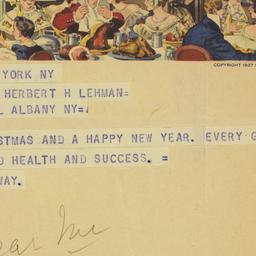 COPYRIGHT 1937
YORK NY
HERBERT H LEHMAN=
ALBANY NY=
STMAS AND A HAPPY NEW YEAR. EVERY G
D HEALTH AND SUCCESS. =
WAY.